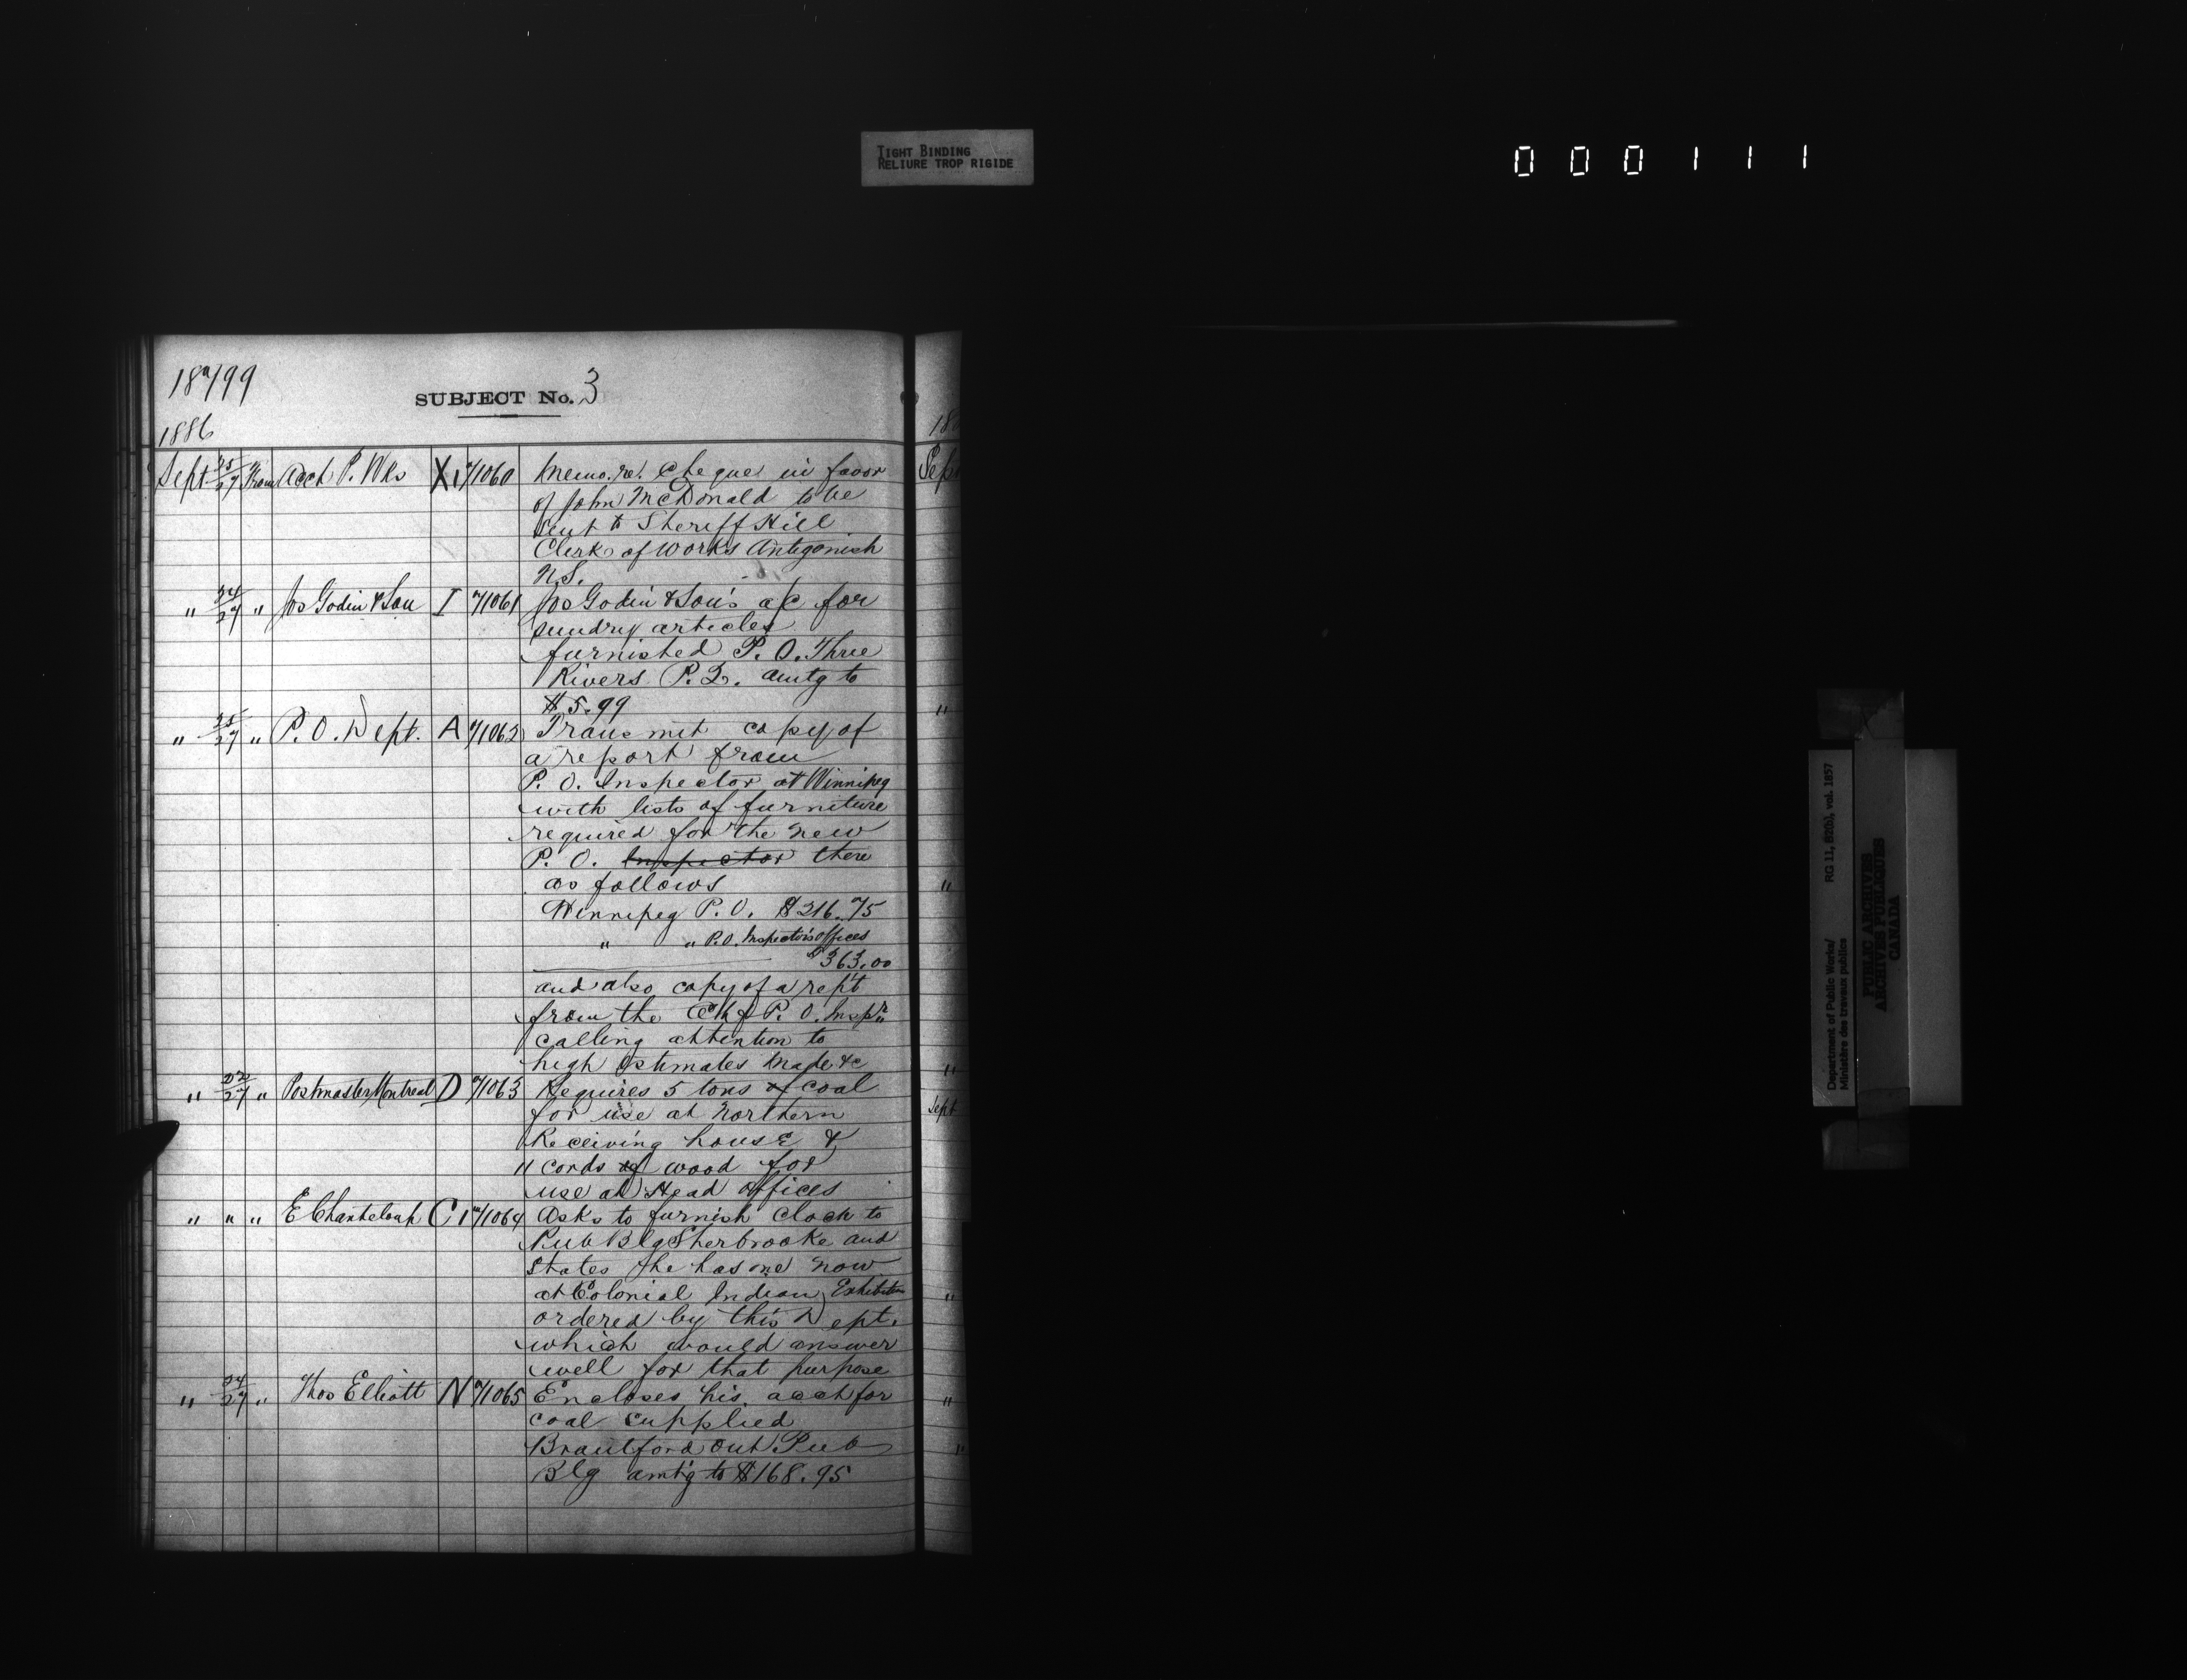 TIGHT BINDING
RELIURE TROP RIGIDE
000111
18799
SUBJECT No. 3
1886
Sept 25/27 From Acct P. Wks X1 71060 Memo. re. Cheque in favor
of John McDonald to be
sent to Sheriff Hill
Clerk of Works Antigonish
N.S.
" 24/27 " Jos Godin & Son I 71061 Jos Godin & Son's a/c for
sundry articles
furnished P. O. Three
Rivers P.Q. amtg to
$5.99
" 25/27 " P. O. Dept. A 71062 Transmit copy of
a report from
P. O. Inspector at Winnipeg
with lists of furniture
required for the new
P. O. Inspector there
as follows
Winnipeg P. O. $216.75
" " P.O. Inspector's Offices
$363.00
and also copy of a rept
from the Chf P. O. Inspr
calling attention to
high estimates made &c
" 22/27 " Postmaster Montreal D 71063 Requires 5 tons of coal
for use at Northern
Receiving house &
11 cords of wood for
use at Head offices
" " " E Chanteloup C1 71064 Asks to furnish clock to
Pub Blg Sherbrooke and
states he has one now
at Colonial Indian Exhibition
ordered by this Dept.
which would answer
well for that purpose
" 24/27 " Thos Elliott N 71065 Encloses his acct for
coal supplied
Brantford Ont Pub
Blg amt'g to $168.95
188
Sept
"
"
"
Sept
"
"
"
Department of Public Works/
Ministère des travaux publics
RG 11, B2(b), vol. 1857
PUBLIC ARCHIVES
ARCHIVES PUBLIQUES
CANADA